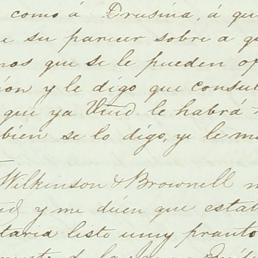 como á Drusina, á qu
e su parecer sobre a qu
nos que se le pueden op
ión y le digo que consul
que ya Vmd le habrá
bien se lo digo, y le m
Wilkinson & Brownell m
y me dicen que estab
taria listo muy pronto